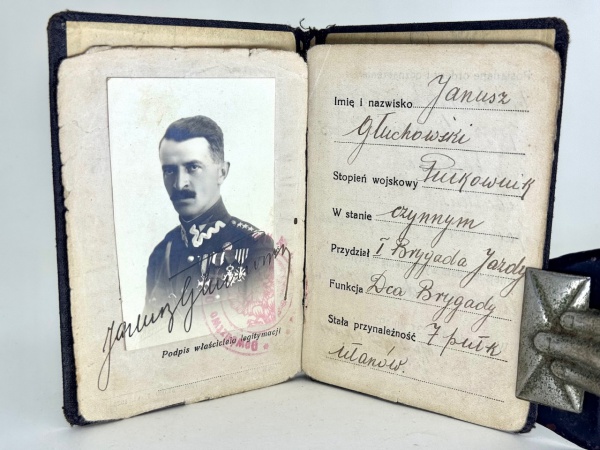 Janusz Głuchowski
Podpis właściciela legitymacji
Imię i nazwisko Janusz
Głuchowski
Stopień wojskowy Pułkownik
W stanie czynnym
Przydział I Brygada Jazdy
Funkcja Dca Brygady
Stała przynależność 7 pułk
ułanów.